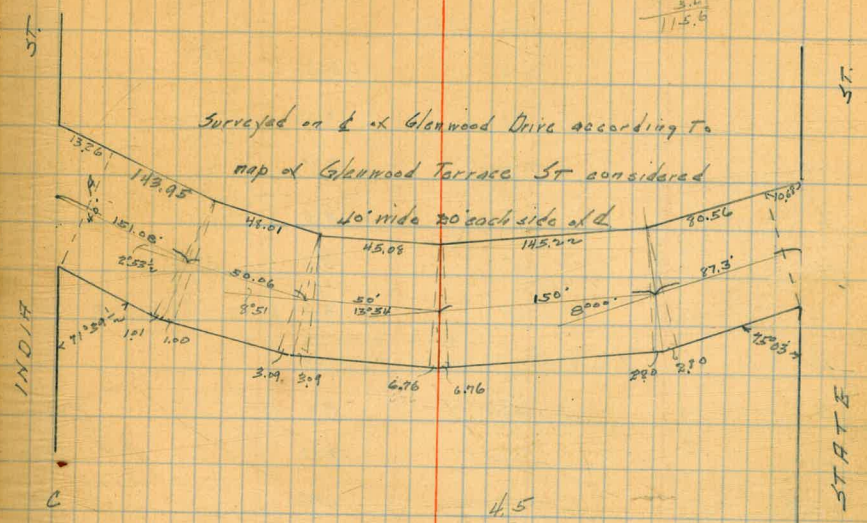 5.6
115.6
ST.
ST.
Surveyed on ℄ of Glenwood Drive according To
map of Glenwood Terrace ST considered
40' wide 20' each side of ℄
13.26
143.95
48.01
45.08
145.22
80.56
10.68
151.08'
2°53½
50.06
8°51
50'
13°34
150'
8°00'
87.3'
71°39½
1.01
1.00
3.09
3.09
6.76
6.76
2.80
2.80
75°03'
INDIA
STATE
C
45